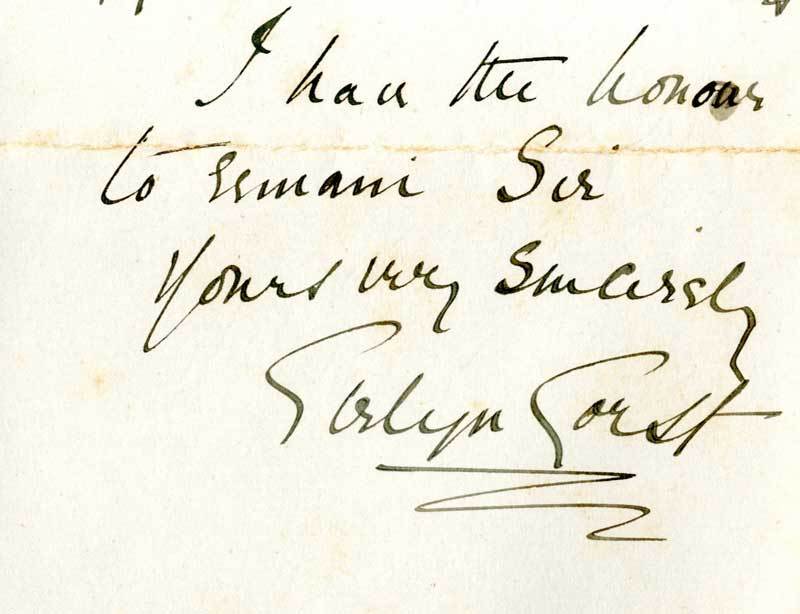 I have the honour
to remain Sir
Yours very sincerely
Evelyn Gorst